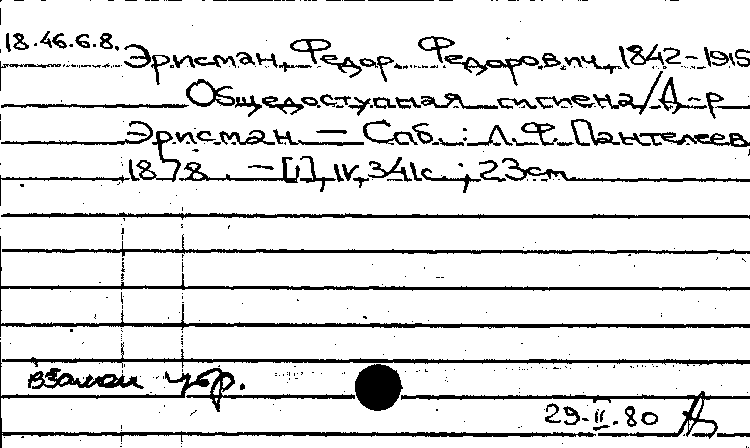 18.46.6.8. Эрисман, Федор Федорович, 1842-1915
Общедоступная гигиена/Д-р
Эрисман. — Спб.: Л.Ф. Пантелеев,
1878. — [1], IV, 341с.; 23см
взамен утр.
29.II.80